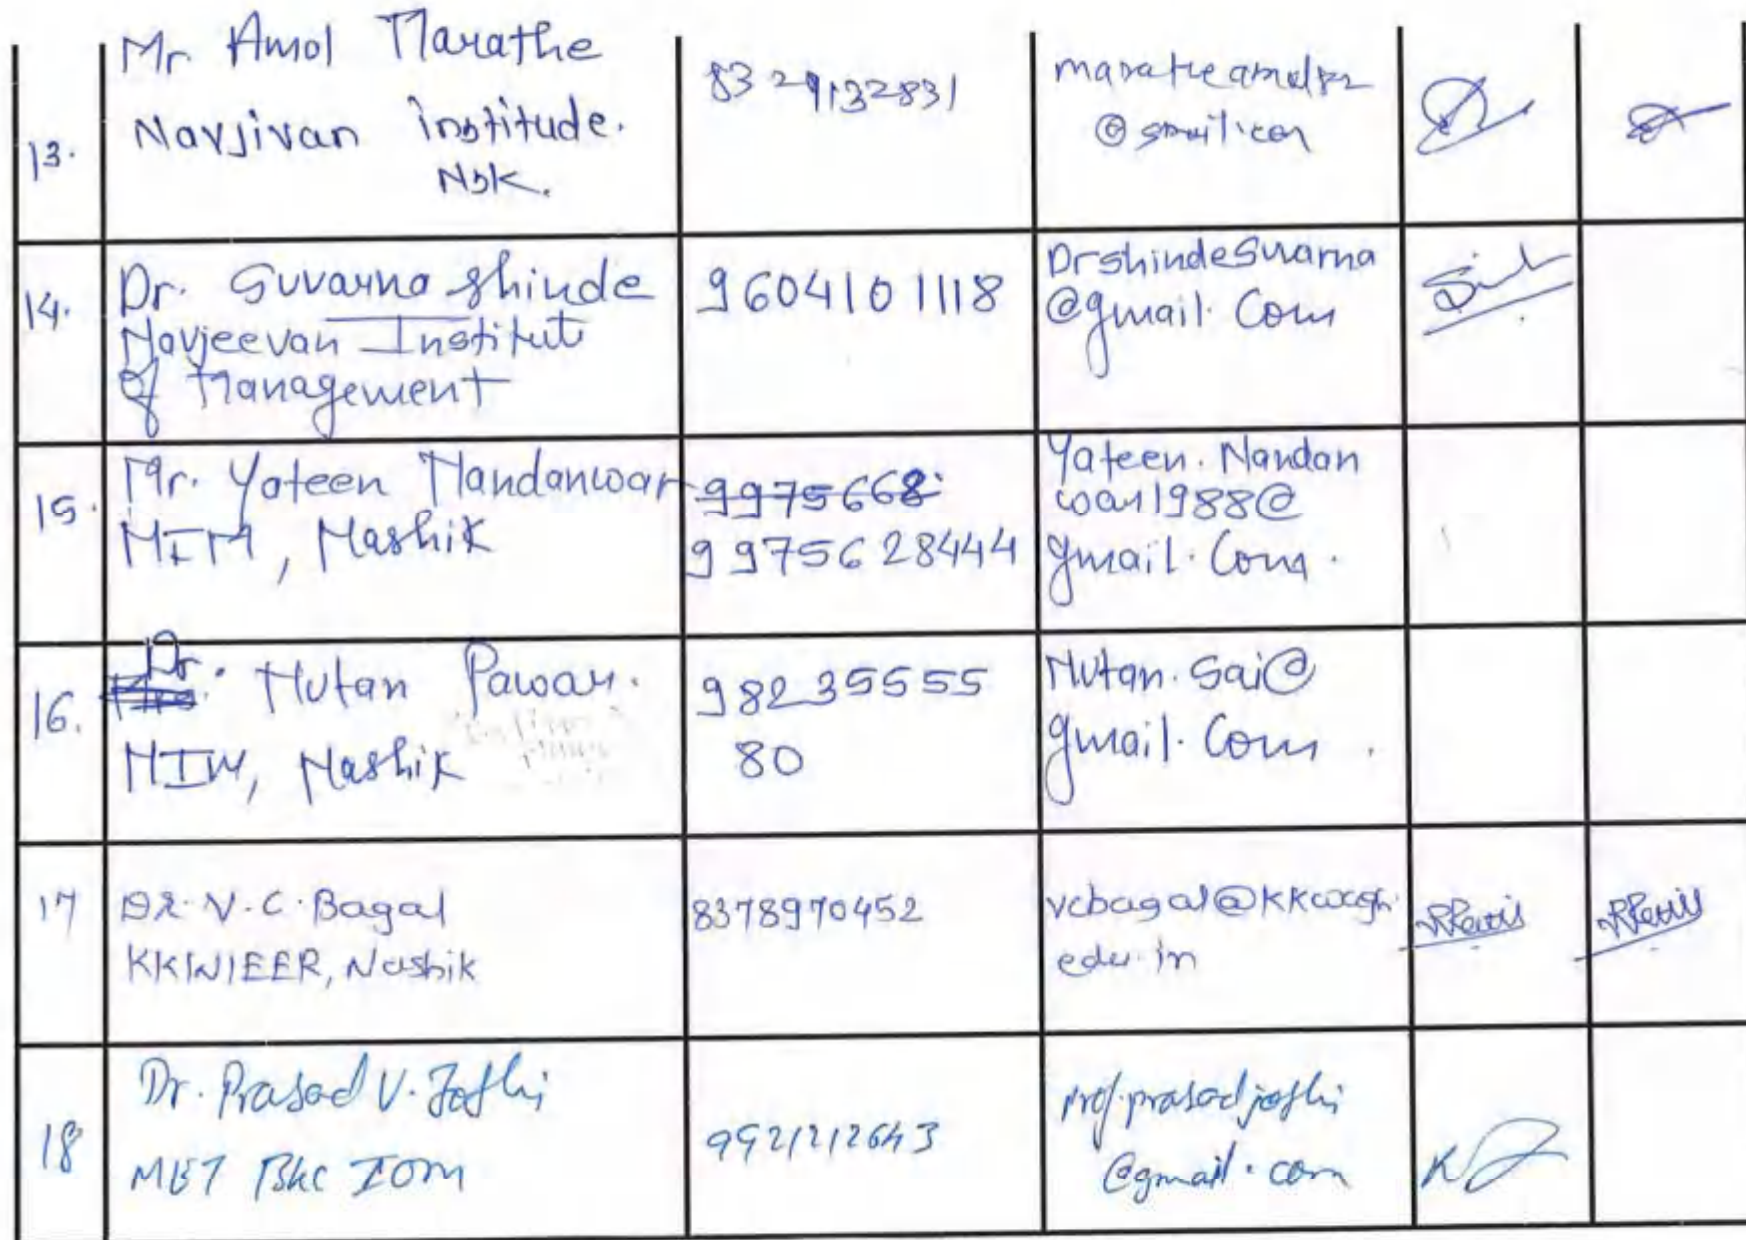 13.
Mr. Amol Marathe
Navjivan institude.
Nsk.
8329132831
14.
Dr. Suvarna Shinde
Navjeevan Institut
of Management
9604101118
Drshindesuvarna
@gmail.Com
15.
Mr. Yateen Nandanwar
NIM, Nashik
9975668
9975628444
Yateen.Nandan
war1988@
gmail.Com.
16.
Dr. Nutan Pawar.
NIM, Nashik
98235555
80
Nutan.Sai@
gmail.Com.
17
Dr. V.C. Bagal
KKWIEER, Nashik
8378970452
vcbagal@kkwagh.
edu.in
18
Dr. Prasad V. Joshi
MET BKC IOM
9921212643
prof.prasadjoshi
@gmail.com